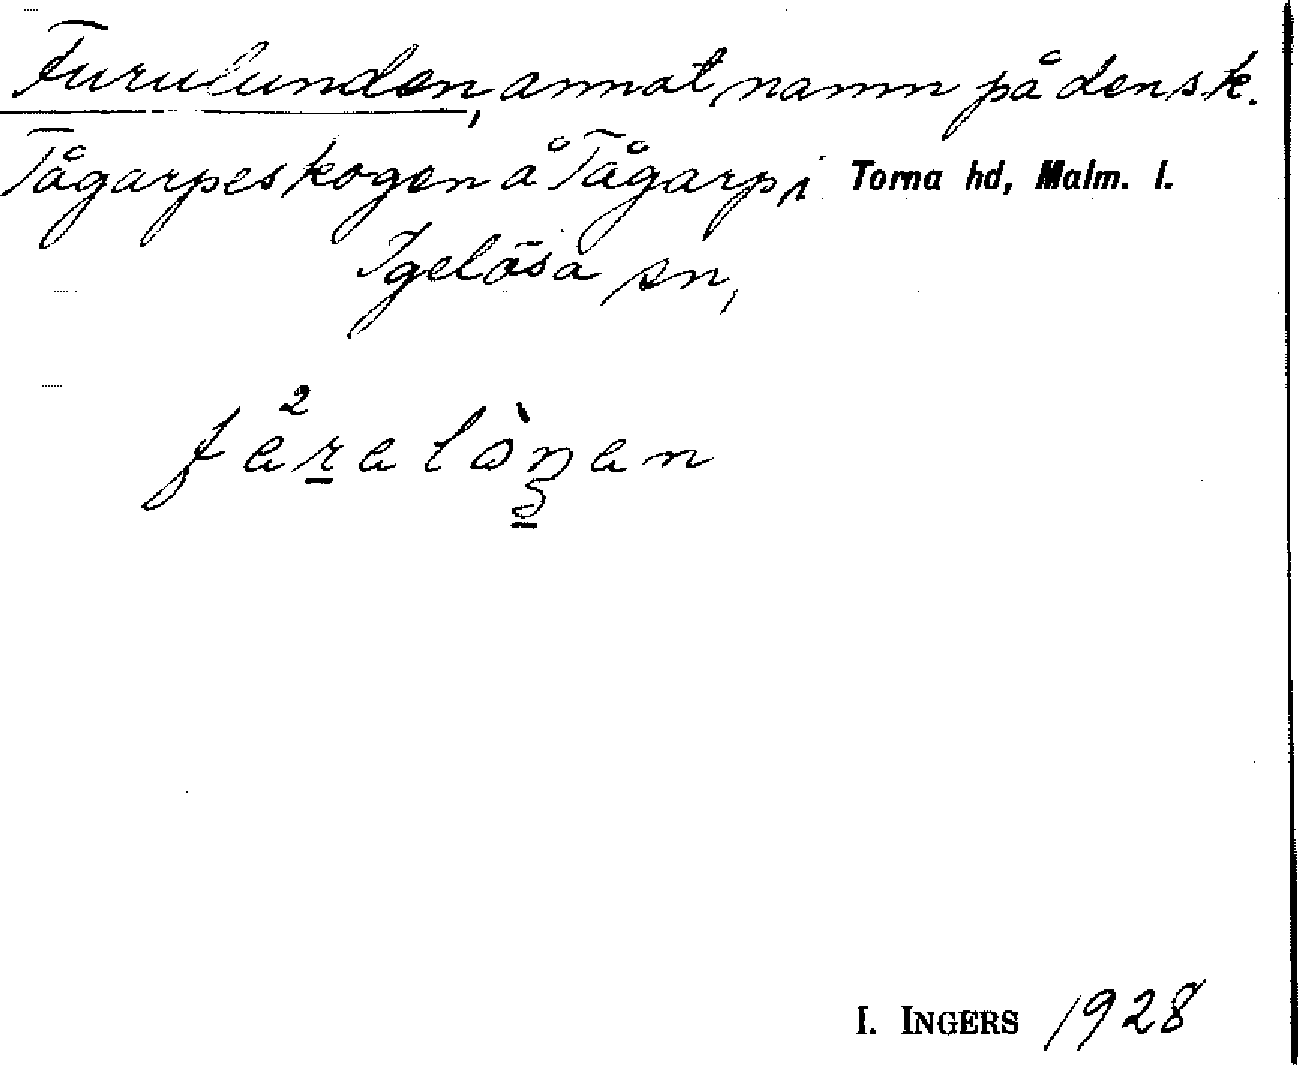 Furulunden, annat namn på den s.k.
Tågarpeskogen å Tågarp, i Torna hd, Malm. l.
Igelösa sn,
I. INGERS 1928